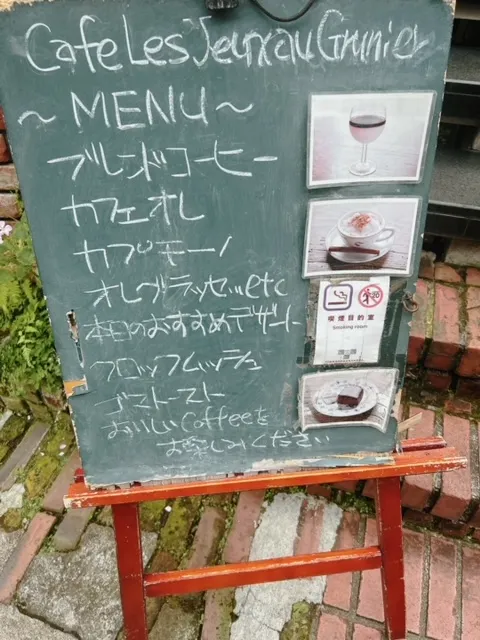 Cafe Les Jeux au Grenier
~ MENU ~
ブレンドコーヒー
カフェオレ
カプリモーノ
オレグラッセ...etc
本日のおすすめデザート
クロックムッシュ
ゴマトースト
おいしいCoffeeを
お楽しみください
喫煙目的室
Smoking room
20